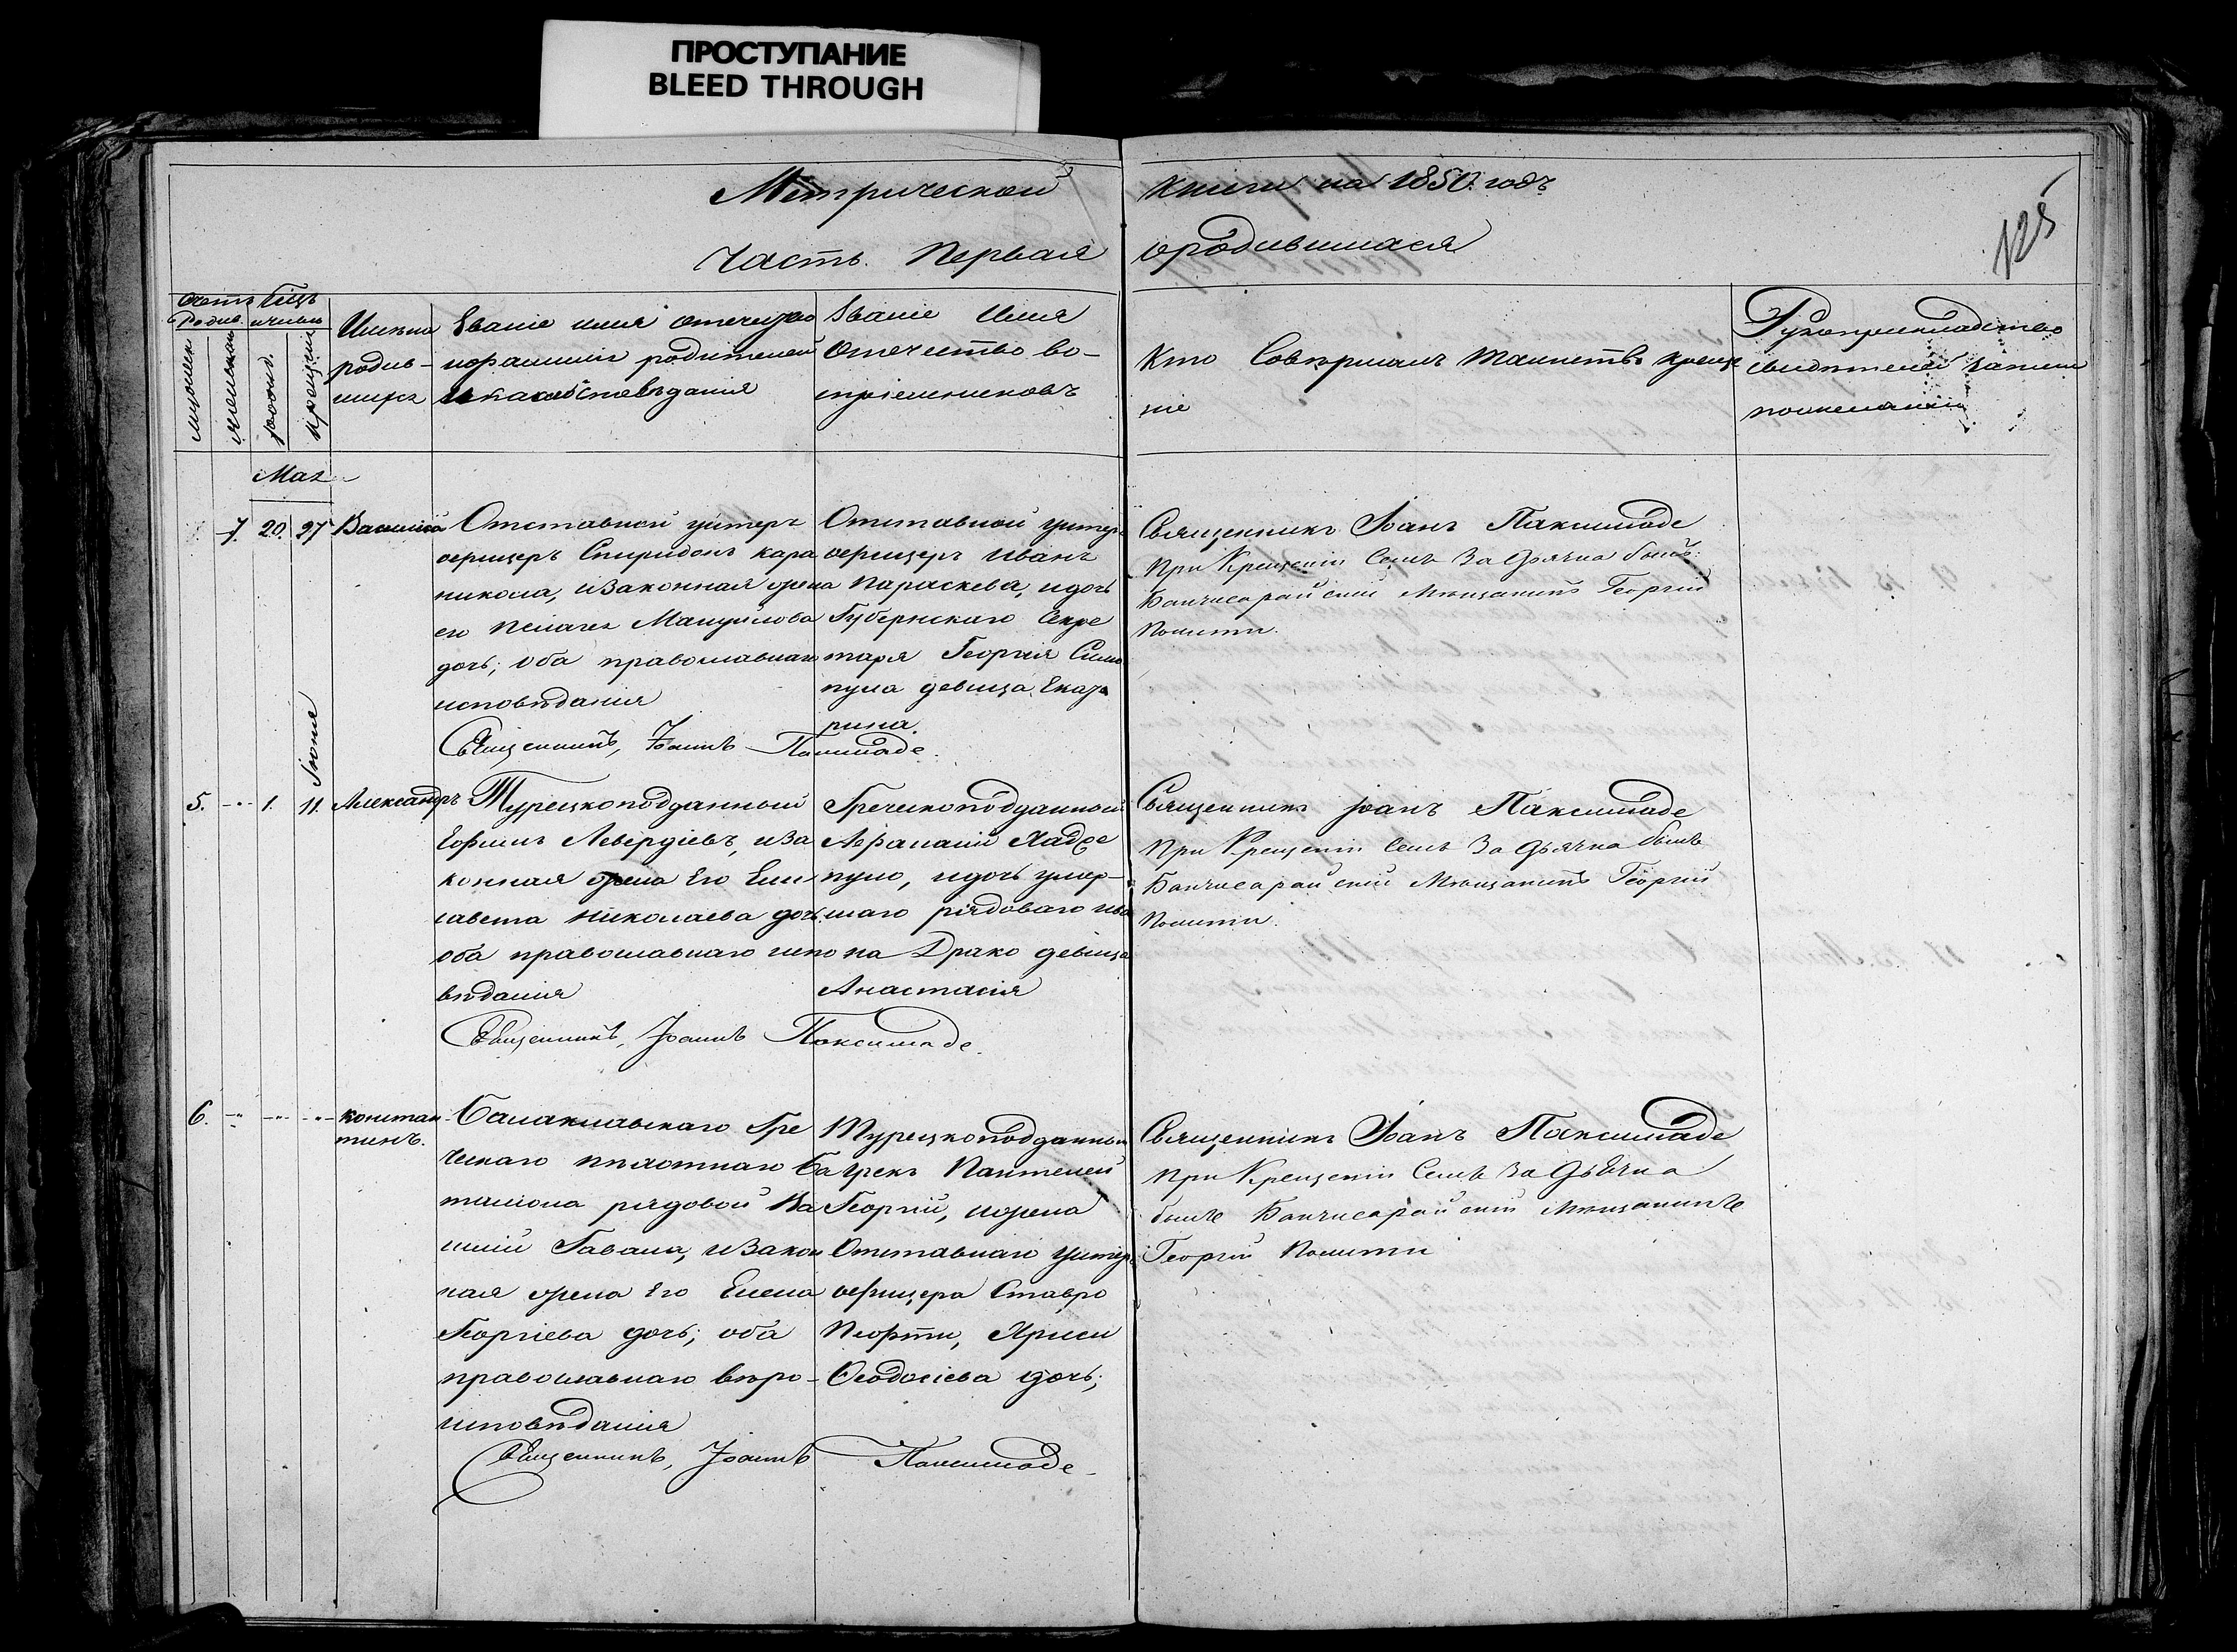 ПРОСТУПАНИЕ
BLEED THROUGH
Метрической книги на 1850. годъ
Часть Первая о родившихся
125
Счетъ Родив.
Мѣсяцъ и число
мужеск
женскаго
рожд.
крещенія
Имена
родив-
шихъ
Званіе имя отечество
и фамиліи родителей
и какого исповѣданія
Званіе Имя
Отечество во-
спріемниковъ
Кто Совершалъ таинство креще
ніе
Рукоприкладство
свидѣтелей записи
по желанію
Мая
7. 20. 27 Василиса
Отставной унтеръ
оефицеръ Спиридонъ кара
никола, и законная жена
его Пелагея Мануйлова
дочь; оба православнаго
исповѣданія
Священникъ, Іоаннъ Паксимаде.
Отставной унтеръ
оефицеръ Иванъ
Параскева, и дочь
Губернскаго Секре
таря Георгія Симо
пула девица Екате
рина.
Священникъ Іоанъ Паксимаде
При Крещеніи Семъ За Дьячка былъ
Бахчисарайскій Мѣщанинъ Георгій
Полити.
Іюня
5. - 1. 11. Александръ
Турецкоподданный
Ефимъ Левердіевъ, и за
конная жена Его Ели
савета Николаева дочь
оба православнаго испо
вѣданія
Священникъ, Іоаннъ Паксимаде.
Греческоподданный
Афанасій Хадже
пуло, и дочь умер-
шаго рядоваго ива
на Драко девица
Анастасія
Священникъ Іоанъ Паксимаде
При Крещеніи Семъ За Дьячка былъ
Бахчисарайскій Мѣщанинъ Георгій
Полити.
6. -"- -"- -"- Констан
тинъ.
Балаклавскаго Гре
ческаго пѣхотнаго Ба
таліона рядовой Ва
силій Гавала, и закон
ная жена Его Елена
Георгіева дочь; оба
православнаго вѣро-
исповѣданія
Священникъ, Іоаннъ Паксимаде.
Турецкоподданный
грекъ Пантелей
Георгій, и жена
Отставнаго унтеръ
оефицера Ставро
Псорти, Хриси
Феодосіева дочь;
Священникъ Іоанъ Паксимаде
При Крещеніи Семъ За Дьячка
былъ Бахчисарайскій Мѣщанинъ
Георгій Полити